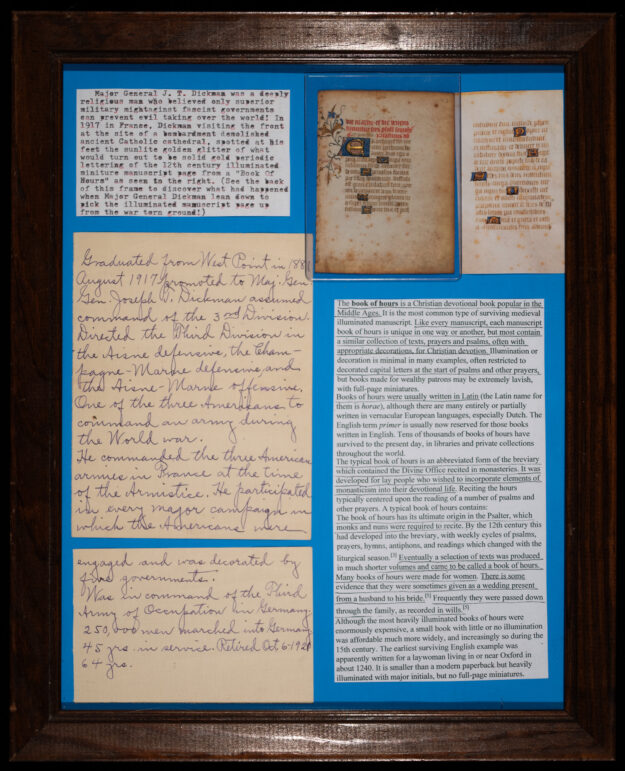 Major General J. T. Dickman was a deeply
religious man who believed only superior
military mightaginst fascist governments
can prevent evil taking over the world! In
1917 in France, Dickman visiting the front
at the site of a bombardment demolished
ancient Catholic cathedral, spotted at his
feet the sunlite golden glitter of what
would turn out to be solid gold periodic
lettering of the 12th century illuminated
miniture manuscript page from a "Book Of
Hours" as seen to the right. (See the back
of this frame to discover what had happened
when Major General Dickman lean down to
pick the illuminated manuscript page up
from the war torn ground!)
Graduated from West Point in 1881
August 1917 promoted to Maj. Gen.
Gen. Joseph T. Dickman assumed
command of the 3rd Division.
Directed the Third Division in
the Aisne defensive, the Cham-
pagne-Marne defensive, and
the Aisne-Marne offensive.
One of the three Americans to
command an army during
the World war.
He commanded the three American
armies in France at the time
of the Armistice. He participated
in every major campaign in
which the Americans were
engaged and was decorated by
five governments.
Was in command of the Third
Army of Occupation in Germany.
250,000 men marched into Germany
45 yrs. in service. Retired Oct 6-1921
64 yrs.
The book of hours is a Christian devotional book popular in the
Middle Ages. It is the most common type of surviving medieval
illuminated manuscript. Like every manuscript, each manuscript
book of hours is unique in one way or another, but most contain
a similar collection of texts, prayers and psalms, often with
appropriate decorations, for Christian devotion. Illumination or
decoration is minimal in many examples, often restricted to
decorated capital letters at the start of psalms and other prayers,
but books made for wealthy patrons may be extremely lavish,
with full-page miniatures.
Books of hours were usually written in Latin (the Latin name for
them is horae), although there are many entirely or partially
written in vernacular European languages, especially Dutch. The
English term primer is usually now reserved for those books
written in English. Tens of thousands of books of hours have
survived to the present day, in libraries and private collections
throughout the world.
The typical book of hours is an abbreviated form of the breviary
which contained the Divine Office recited in monasteries. It was
developed for lay people who wished to incorporate elements of
monasticism into their devotional life. Reciting the hours
typically centered upon the reading of a number of psalms and
other prayers. A typical book of hours contains:
The book of hours has its ultimate origin in the Psalter, which
monks and nuns were required to recite. By the 12th century this
had developed into the breviary, with weekly cycles of psalms,
prayers, hymns, antiphons, and readings which changed with the
liturgical season.[3] Eventually a selection of texts was produced
in much shorter volumes and came to be called a book of hours.
Many books of hours were made for women. There is some
evidence that they were sometimes given as a wedding present
from a husband to his bride.[5] Frequently they were passed down
through the family, as recorded in wills.[5]
Although the most heavily illuminated books of hours were
enormously expensive, a small book with little or no illumination
was affordable much more widely, and increasingly so during the
15th century. The earliest surviving English example was
apparently written for a laywoman living in or near Oxford in
about 1240. It is smaller than a modern paperback but heavily
illuminated with major initials, but no full-page miniatures.